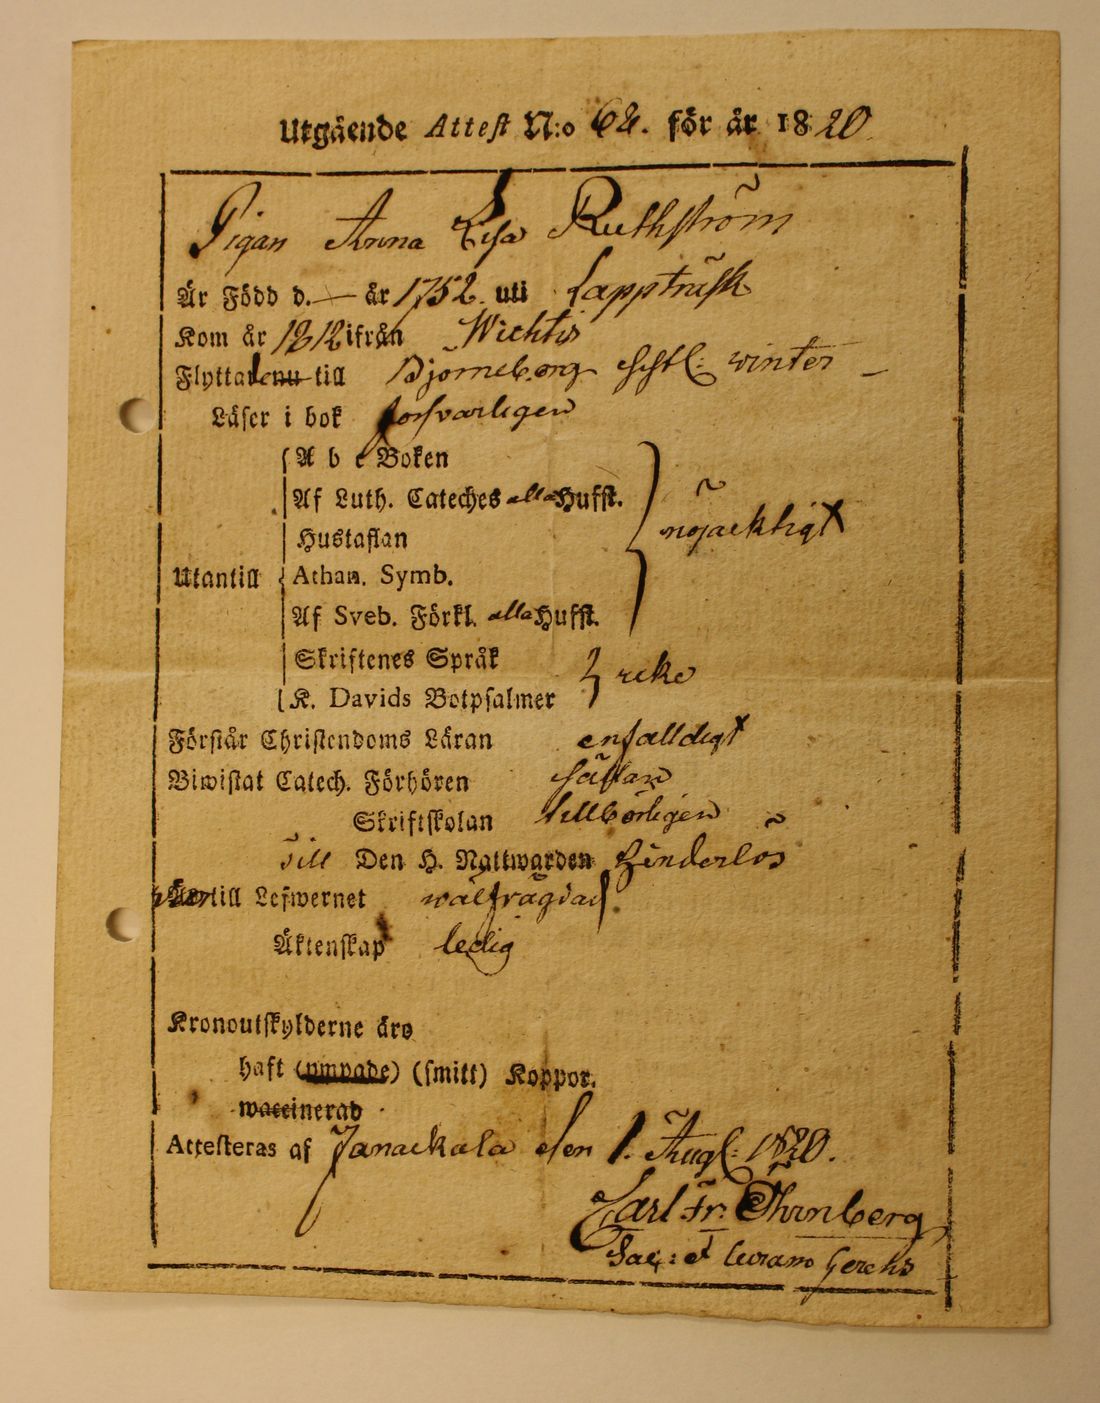 Utgående Attest N:o 62. för år 1820
Pigan Anna Lisa Ruthström
Är Född d. — år 1752. uti Lappträsk
Kom år 1812 ifrån Wichtis
Flyttade nu till Björneborg sistl: winter —
Läser i bok försvarligen
A b c Boken
Af Luth. Cateches alla Hufst.
Hustaflan
nöjacktigt
Utantill
Athan. Symb.
Af Sveb. Förkl. alla Hufst.
Skriftenes Språk
icke
K. Davids Botpsalmer
Förstår Christendoms Läran enfalldigt
Biwistat Catech. Förhören sällan
Skriftskolan tillbörligen
Till Den H. Nattwarden hinderlös
till Lefwernet wälfrägdad
Äktenskap ledig
Kronoutskylderne äro
haft (ympade) (smitt) Koppor.
waccinerad
Attesteras af Janackala den 1. Aug: 1820.
Carl Fr: Thunberg
Sac: et